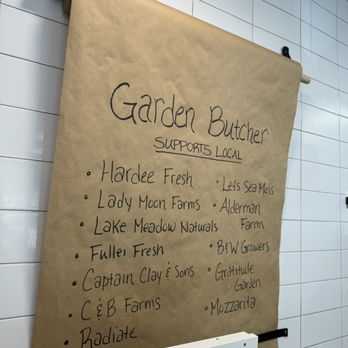 Garden Butcher
SUPPORTS LOCAL
• Hardee Fresh
• Lady Moon Farms
• Lake Meadow Naturals
• Fuller Fresh
• Captain Clay & Sons
• C & B Farms
• Radiate
• Lets Sea Moss
• Alderman
Farms
• B&W Growers
• Gratitude
Garden
• Mozzarita